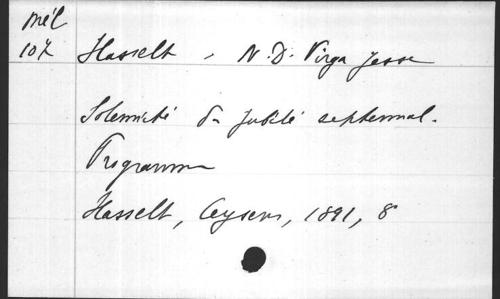 Mél
107
Hasselt, N. D. Virga Jesse
Solennité du jubilé septennal.
Programme
Hasselt, Ceysens, 1891, 8°